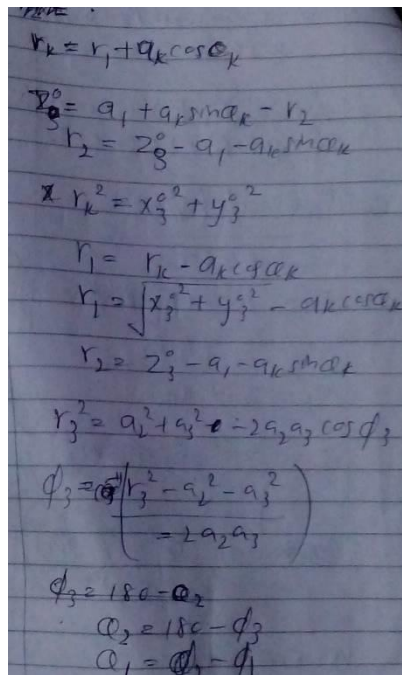 r_k = r_1 + a_k cosθ_k
Z_3^0 = a_1 + a_k sinθ_k - r_2
r_2 = Z_3^0 - a_1 - a_k sinθ_k
r_k^2 = x_3^0^2 + y_3^0^2
r_1 = r_k - a_k cosθ_k
r_1 = √(x_3^0^2 + y_3^0^2) - a_k cosθ_k
r_2 = Z_3^0 - a_1 - a_k sinθ_k
r_3^2 = a_2^2 + a_3^2 - 2a_2a_3 cosϕ_3
ϕ_3 = cos^-1 (r_3^2 - a_2^2 - a_3^2
= 2a_2a_3)
ϕ_3 = 180 - θ_2
θ_2 = 180 - ϕ_3
θ_1 = ϕ_2 - ϕ_1